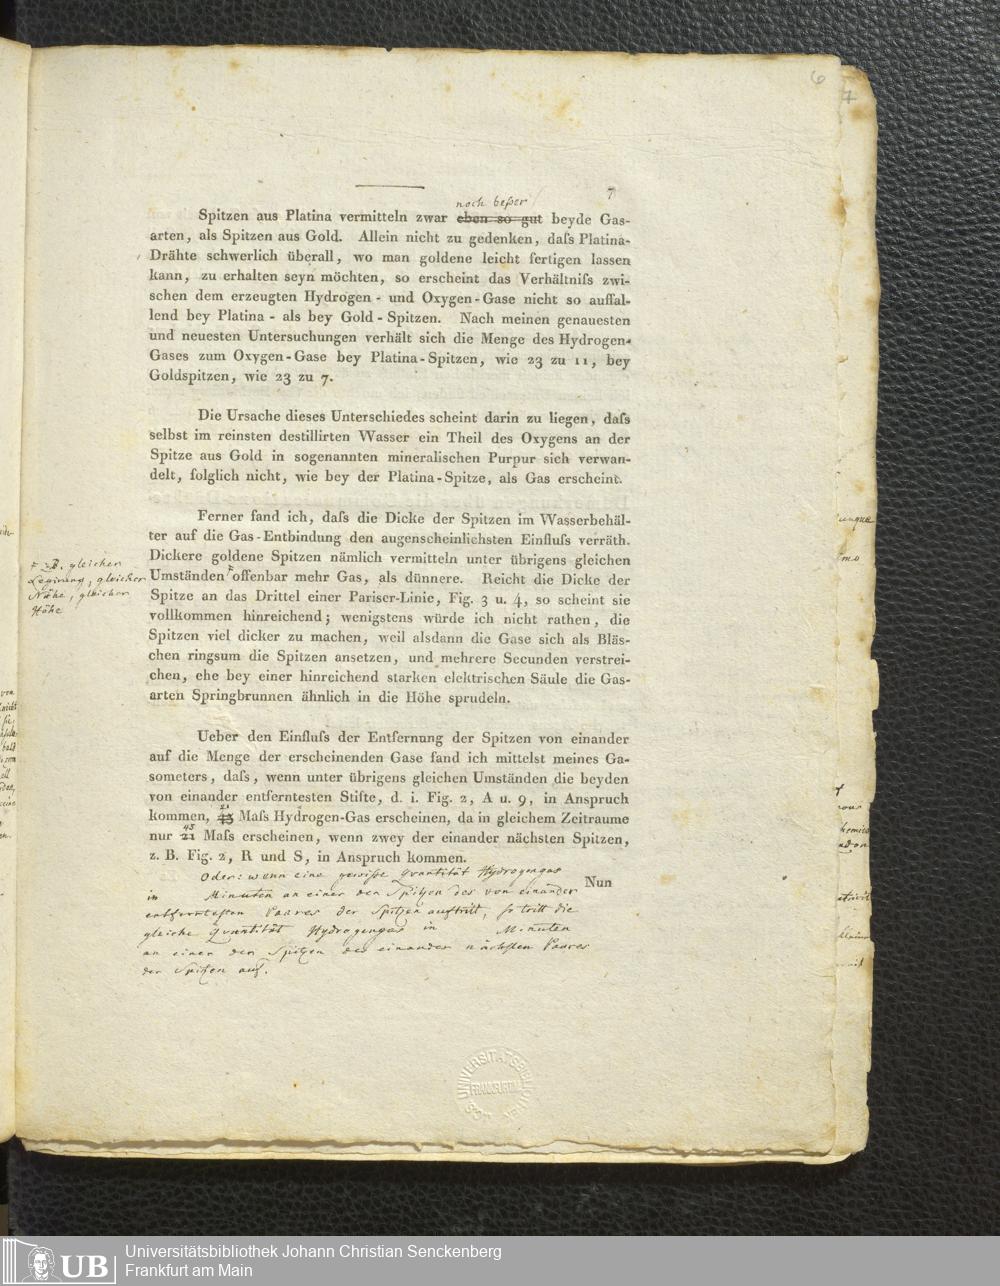 6
7
7
noch beßer
Spitzen aus Platina vermitteln zwar eben so gut beyde Gas-
arten, als Spitzen aus Gold. Allein nicht zu gedenken, daſs Platina-
Drähte schwerlich überall, wo man goldene leicht fertigen lassen
kann, zu erhalten seyn möchten, so erscheint das Verhältniſs zwi-
schen dem erzeugten Hydrogen- und Oxygen-Gase nicht so auffal-
lend bey Platina- als bey Gold-Spitzen. Nach meinen genauesten
und neuesten Untersuchungen verhält sich die Menge des Hydrogen-
Gases zum Oxygen-Gase bey Platina-Spitzen, wie 23 zu 11, bey
Goldspitzen, wie 23 zu 7.
Die Ursache dieses Unterschiedes scheint darin zu liegen, daſs
selbst im reinsten destillirten Wasser ein Theil des Oxygens an der
Spitze aus Gold in sogenannten mineralischen Purpur sich verwan-
delt, folglich nicht, wie bey der Platina-Spitze, als Gas erscheint.
Ferner fand ich, daſs die Dicke der Spitzen im Wasserbehäl-
ter auf die Gas-Entbindung den augenscheinlichsten Einfluſs verräth.
Dickere goldene Spitzen nämlich vermitteln unter übrigens gleichen
Umständen offenbar mehr Gas, als dünnere. Reicht die Dicke der
Spitze an das Drittel einer Pariser-Linie, Fig. 3 u. 4, so scheint sie
vollkommen hinreichend; wenigstens würde ich nicht rathen, die
Spitzen viel dicker zu machen, weil alsdann die Gase sich als Bläs-
chen ringsum die Spitzen ansetzen, und mehrere Secunden verstrei-
chen, ehe bey einer hinreichend starken elektrischen Säule die Gas-
arten Springbrunnen ähnlich in die Höhe sprudeln.
z.B. gleicher
Legirung, gleicher
Nähe, gleicher
Höhe
Ueber den Einfluſs der Entfernung der Spitzen von einander
auf die Menge der erscheinenden Gase fand ich mittelst meines Ga-
someters, daſs, wenn unter übrigens gleichen Umständen die beyden
von einander entferntesten Stifte, d. i. Fig. 2, A u. 9, in Anspruch
21
kommen, 43 Maſs Hydrogen-Gas erscheinen, da in gleichem Zeitraume
43
nur 21 Maſs erscheinen, wenn zwey der einander nächsten Spitzen,
z. B. Fig. 2, R und S, in Anspruch kommen.
Nun
Oder: wenn eine gewiße Quantität Hydrogengas
in Minuten an einer der Spitzen des von einander
entferntesten Paares der Spitzen auftritt, so tritt die
gleiche Quantität Hydrogengas in Minuten
an einer der Spitzen des einander nächsten Paares
der Spitzen auf.
UNIVERSITÄTSBIBLIOTHEK JCS
FRANKFURT/M
UB
Universitätsbibliothek Johann Christian Senckenberg
Frankfurt am Main